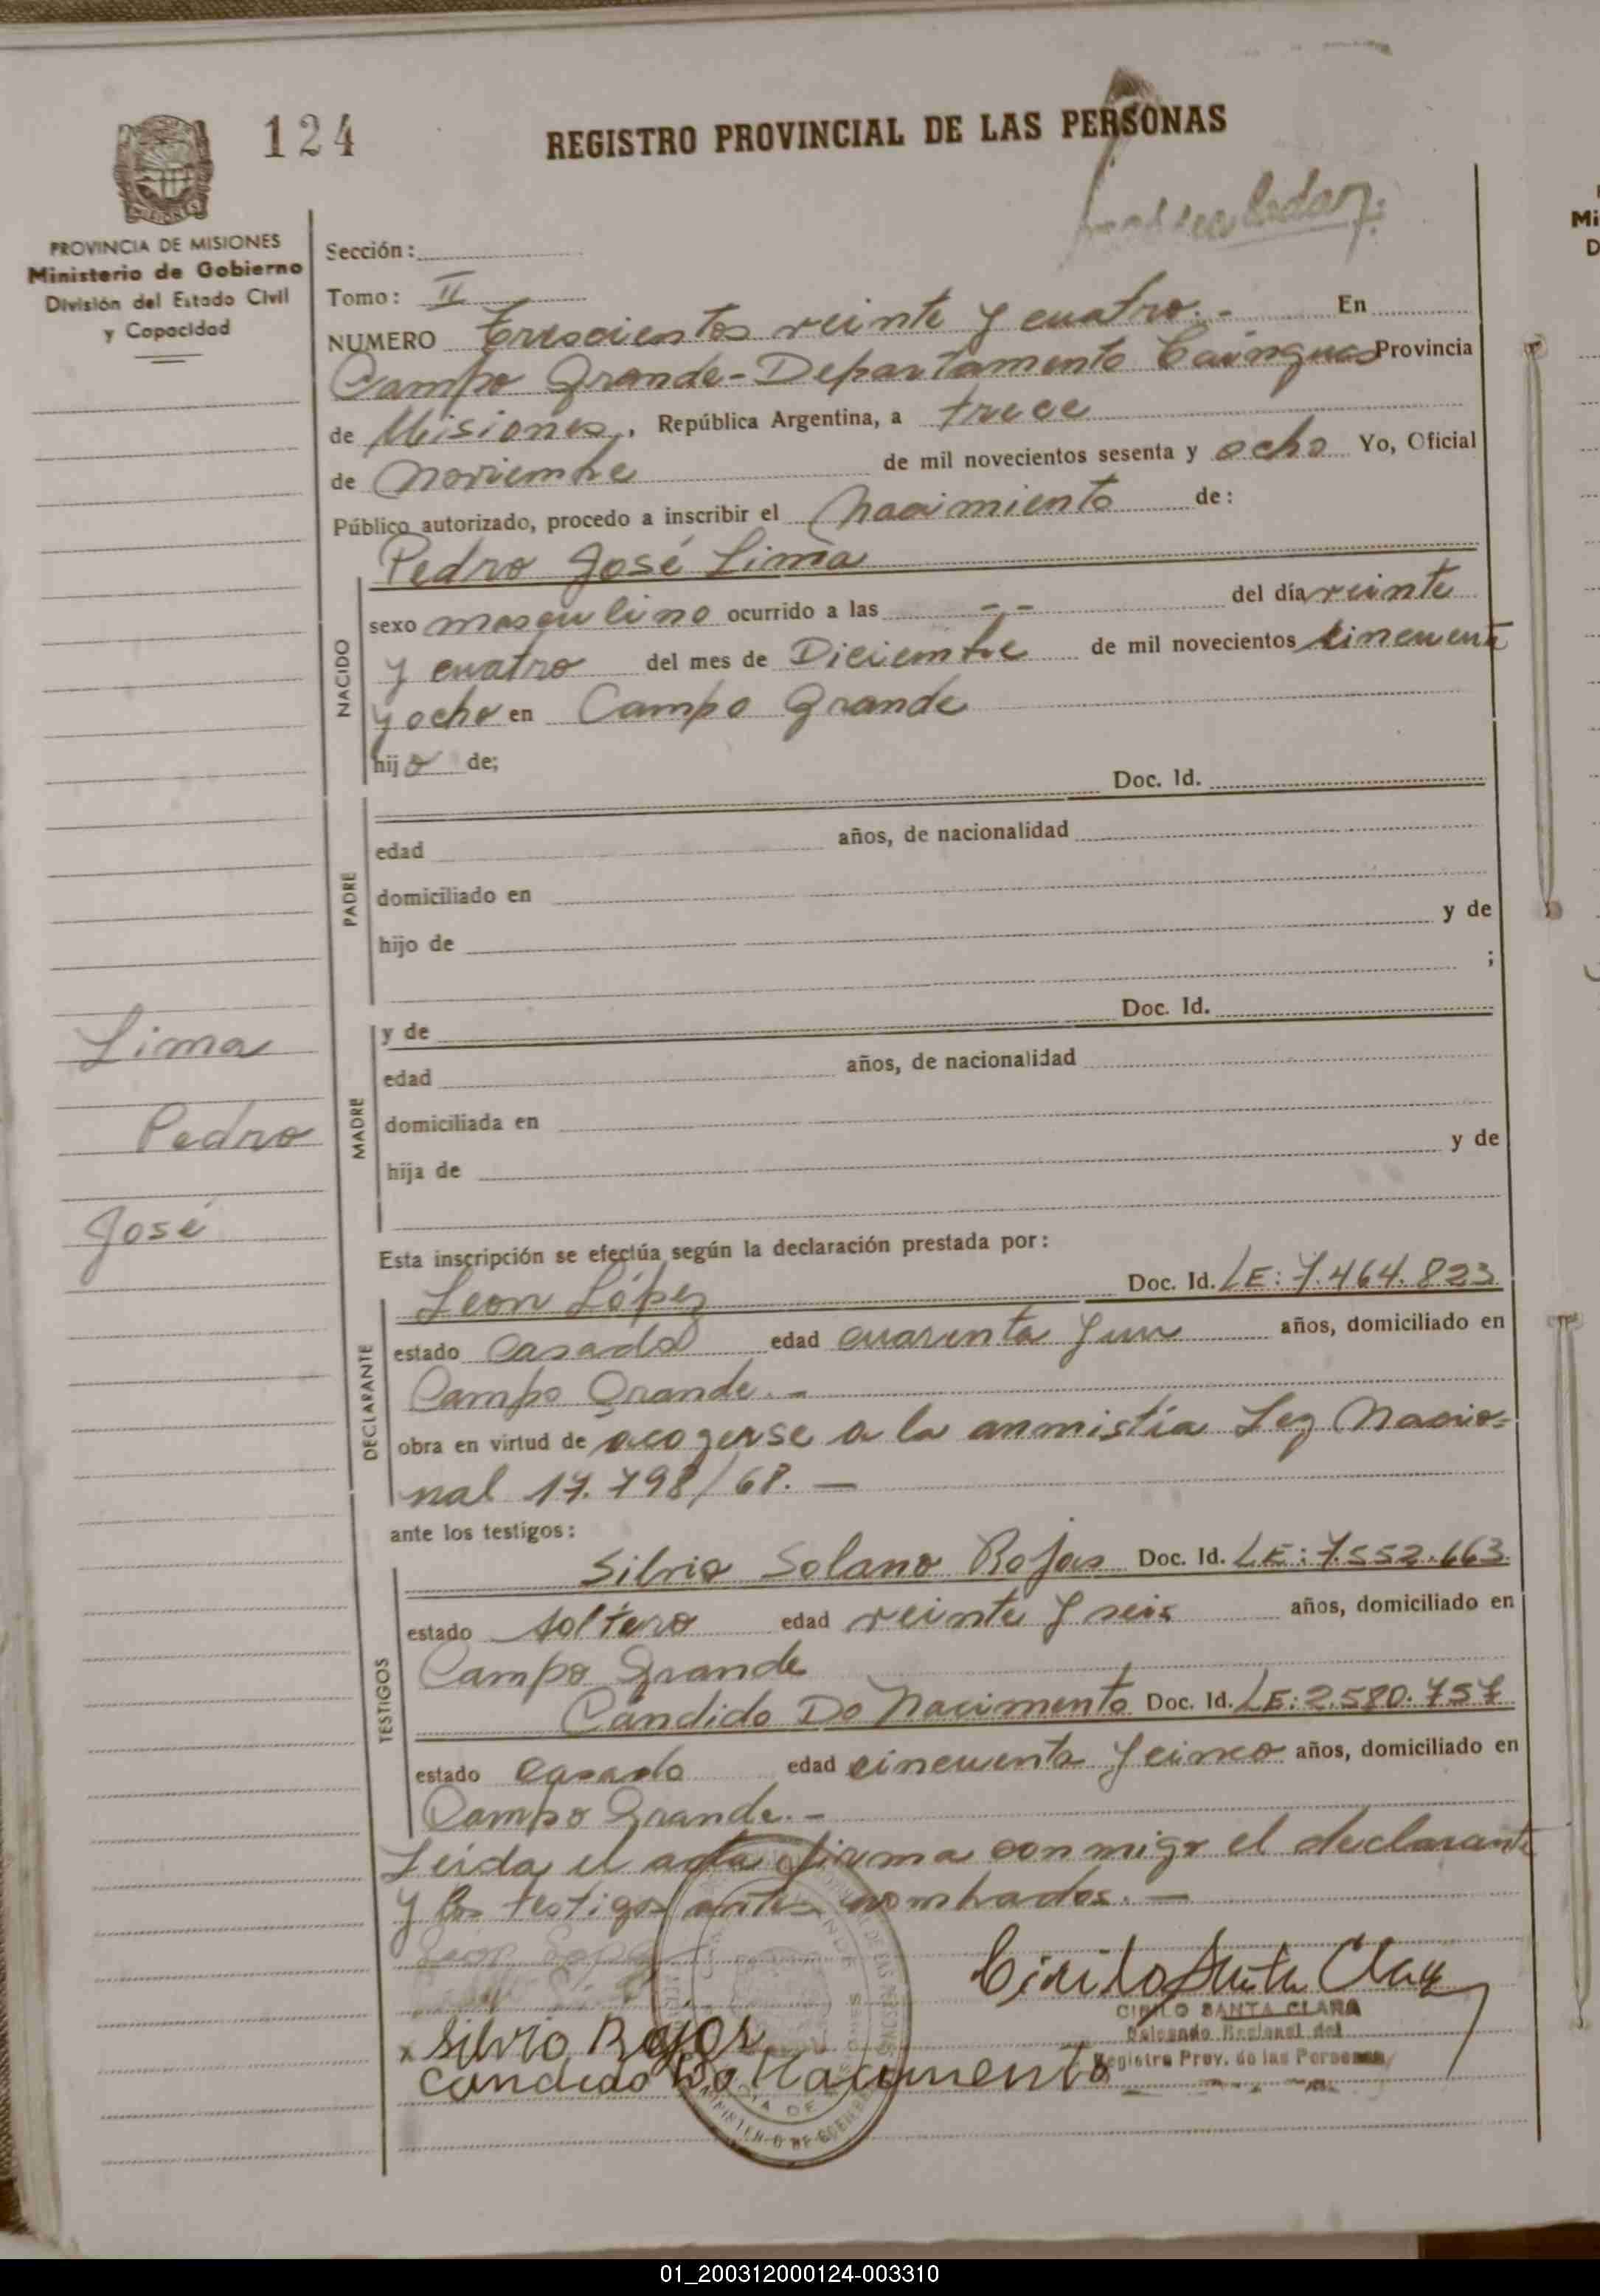 124
REGISTRO PROVINCIAL DE LAS PERSONAS
PROVINCIA DE MISIONES
Ministerio de Gobierno
División del Estado Civil
y Capacidad
Sección:
Tomo: II
NUMERO Trescientos veinte y cuatro.- En
Campo Grande-Departamento Cainguas Provincia
de Misiones, República Argentina, a trece
de Noviembre de mil novecientos sesenta y ocho Yo, Oficial
Público autorizado, procedo a inscribir el Nacimiento de:
Pedro José Lima
NACIDO
sexo masculino ocurrido a las -- del día veinte
y cuatro del mes de Diciembre de mil novecientos cincuenta
y ocho en Campo Grande
hijo de;
PADRE
Doc. Id.
edad años, de nacionalidad
domiciliado en
hijo de y de
;
MADRE
y de Doc. Id.
edad años, de nacionalidad
domiciliada en
hija de y de
Lima
Pedro
José
Esta inscripción se efectúa según la declaración prestada por:
DECLARANTE
Leon López Doc. Id. LE: 7.464.823
estado Casado edad cuarenta y un años, domiciliado en
Campo Grande.-
obra en virtud de acogerse a la anmistía Ley Nacio=
nal 17.798/68.—
ante los testigos:
TESTIGOS
Silvio Solano Rojas Doc. Id. LE: 7.552.663
estado soltero edad veinte y seis años, domiciliado en
Campo Grande
Cándido Do Nacimento Doc. Id. LE: 2.580.757
estado casado edad cincuenta y cinco años, domiciliado en
Campo Grande.-
Leída el acta firma conmigo el declarante
y los testigos antes nombrados.—
Leon Lopez
Cirilo Santa Clara
CIRILO SANTA CLARA
Delegado Regional del
Registro Prov. de las Personas
x Silvio Rojas
Candido Do Nacimento
MINISTERIO DE GOBIERNO
01_200312000124-003310